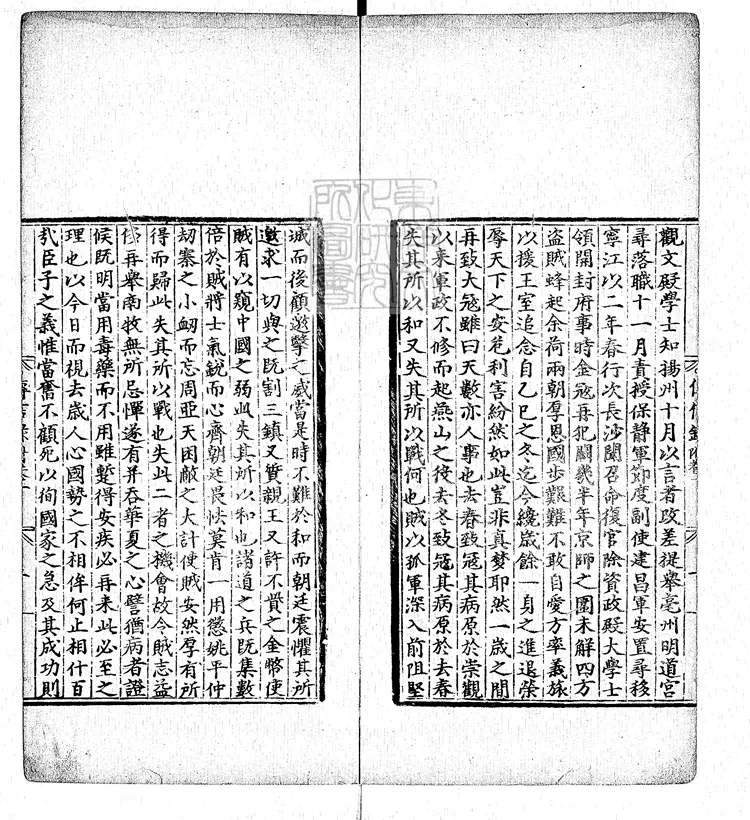 觀文殿學士知揚州十月以言者改差提舉亳州明道宮
尋落職十一月責授保靜軍節度副使建昌軍安置尋移
寧江以二年春行次長沙聞召命復官除資政殿大學士
領開封府事時金寇再犯闕幾半年京師之圍未解四方
盜賊蜂起余荷兩朝厚恩國步艱難不敢自愛方率義旅
以援王室追念自乙巳之冬迄今纔歲餘一身之進退榮
辱天下之安危利害紛然如此豈非真夢耶然一歲之間
再致大寇雖曰天數亦人事也去春致寇其病原於崇觀
以來軍政不修而起燕山之役去冬致寇其病原於去春
失其所以和又失其所以戰何也賊以孤軍深入前阻堅
城而後顧邀擊之威當是時不難於和而朝廷震懼其所
邀求一切與之既割三鎮又質親王又許不貲之金幣使
賊有以窺中國之弱此失其所以和也諸道之兵既集數
倍於賊將士氣銳而心齊朝廷畏怏莫肯一用懲姚平仲
劫寨之小衂而忘周亞夫困敵之大計使賊安然厚有所
得而歸此失其所以戰也失此二者之機會故今賊志益
侈再舉南牧無所忌憚遂有并吞華夏之心譬猶病者證
候既明當用毒藥而不用雖蹔得安疾必再來此必至之
理也以今日而視去歲人心國勢之不相侔何止相什百
哉臣子之義惟當奮不顧死以徇國家之急及其成功則